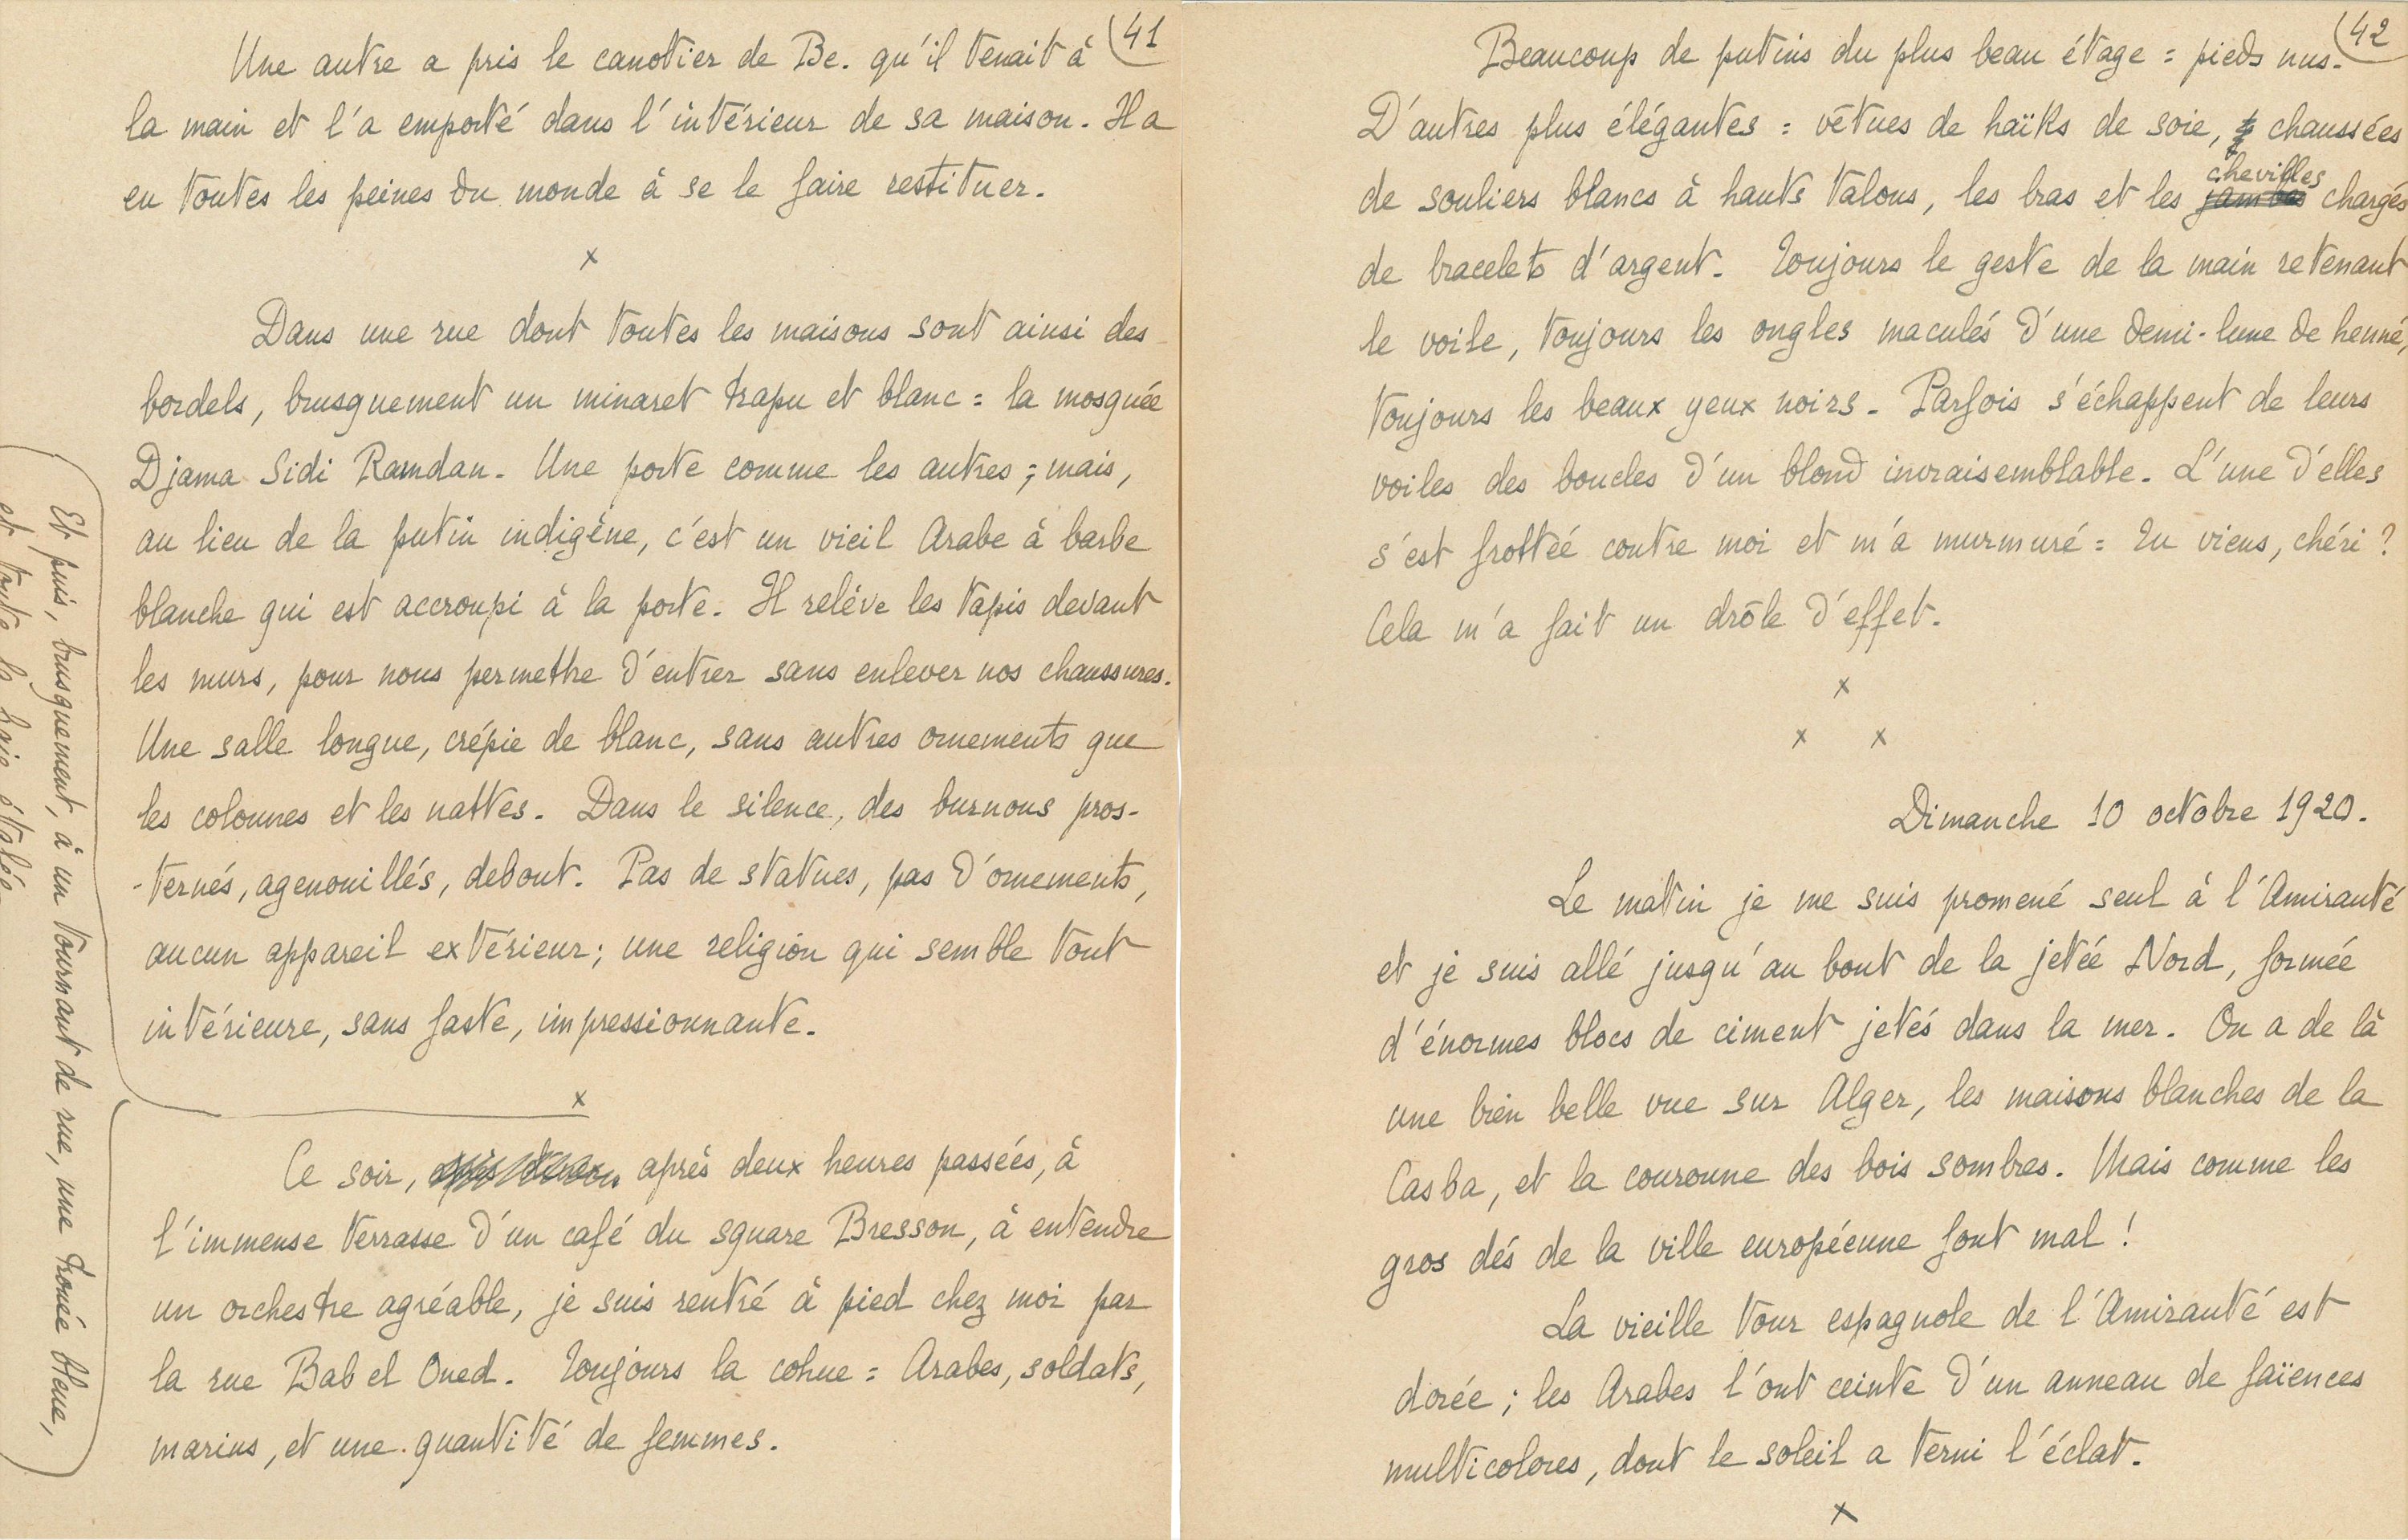 41
Une autre a pris le canotier de Be. qu'il tenait à
la main et l'a emporté dans l'intérieur de sa maison. Il a
eu toutes les peines du monde à se le faire restituer.
x
Dans une rue dont toutes les maisons sont ainsi des
bordels, brusquement un minaret trapu et blanc : la mosquée
Djama Sidi Ramdan. Une porte comme les autres ; mais,
au lieu de la putin indigène, c'est un vieil Arabe à barbe
blanche qui est accroupi à la porte. Il relève les tapis devant
les murs, pour nous permettre d'entrer sans enlever nos chaussures.
Une salle longue, crépie de blanc, sans autres ornements que
les colonnes et les nattes. Dans le silence, des burnous pros-
-ternés, agenouillés, debout. Pas de statues, pas d'ornements,
aucun appareil extérieur ; une religion qui semble tout
intérieure, sans faste, impressionnante.
x
Et puis, brusquement, à un tournant de rue, une trouée bleue,
et toute la baie étalée
Ce soir, après deux heures passées, à
l'immense terrasse d'un café du square Bresson, à entendre
un orchestre agréable, je suis rentré à pied chez moi par
la rue Bab el Oued. Toujours la cohue : Arabes, soldats,
marins, et une quantité de femmes.
42
Beaucoup de putins du plus beau étage : pieds nus.
D'autres plus élégantes : vêtues de haïks de soie, chaussées
de souliers blancs à hauts talons, les bras et les jambes chevilles chargés
de bracelets d'argent. Toujours le geste de la main retenant
le voile, toujours les ongles maculés d'une demi-lune de henné,
toujours les beaux yeux noirs. Parfois s'échappent de leurs
voiles des boucles d'un blond invraisemblable. L'une d'elles
s'est frottée contre moi et m'a murmuré : Tu viens, chéri ?
Cela m'a fait un drôle d'effet.
x
x x
Dimanche 10 octobre 1920.
Le matin je me suis promené seul à l'Amirauté
et je suis allé jusqu'au bout de la jetée Nord, formée
d'énormes blocs de ciment jetés dans la mer. On a de là
une bien belle vue sur Alger, les maisons blanches de la
Casba, et la couronne des bois sombres. Mais comme les
gros dés de la ville européenne font mal !
La vieille tour espagnole de l'Amirauté est
dorée ; les Arabes l'ont ceinte d'un anneau de faïences
multicolores, dont le soleil a terni l'éclat.
x